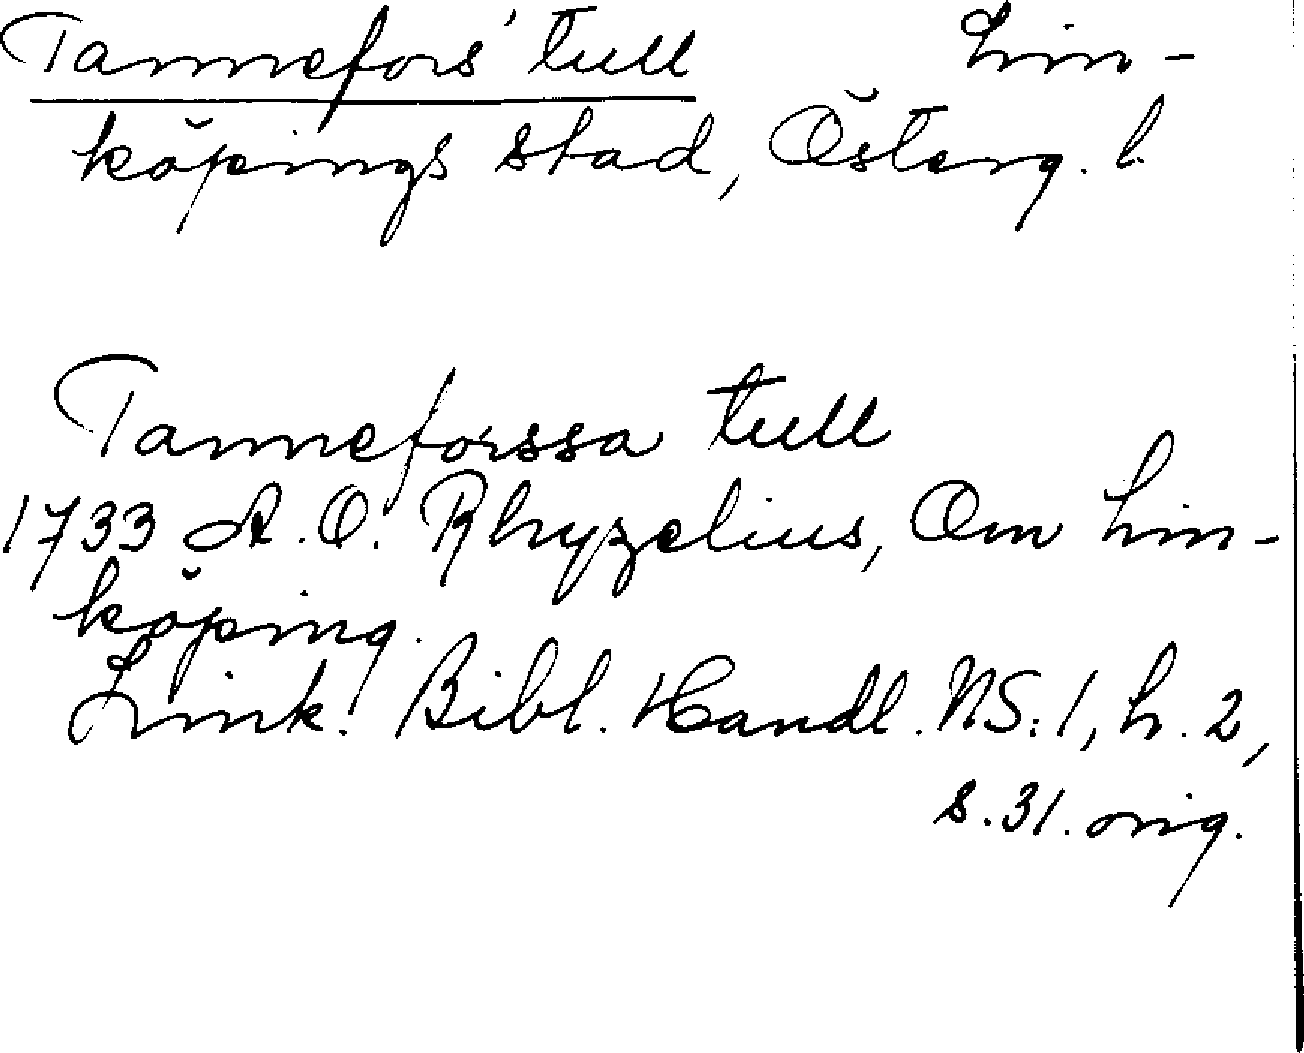 Tannefors' tull Lin-
köpings stad, Österg. l.
Tanneforssa tull
1733 A. O. Rhyzelius, Om Lin-
köping.
Link. Bibl. Handl. NS. 1, h. 2,
s. 31. orig.